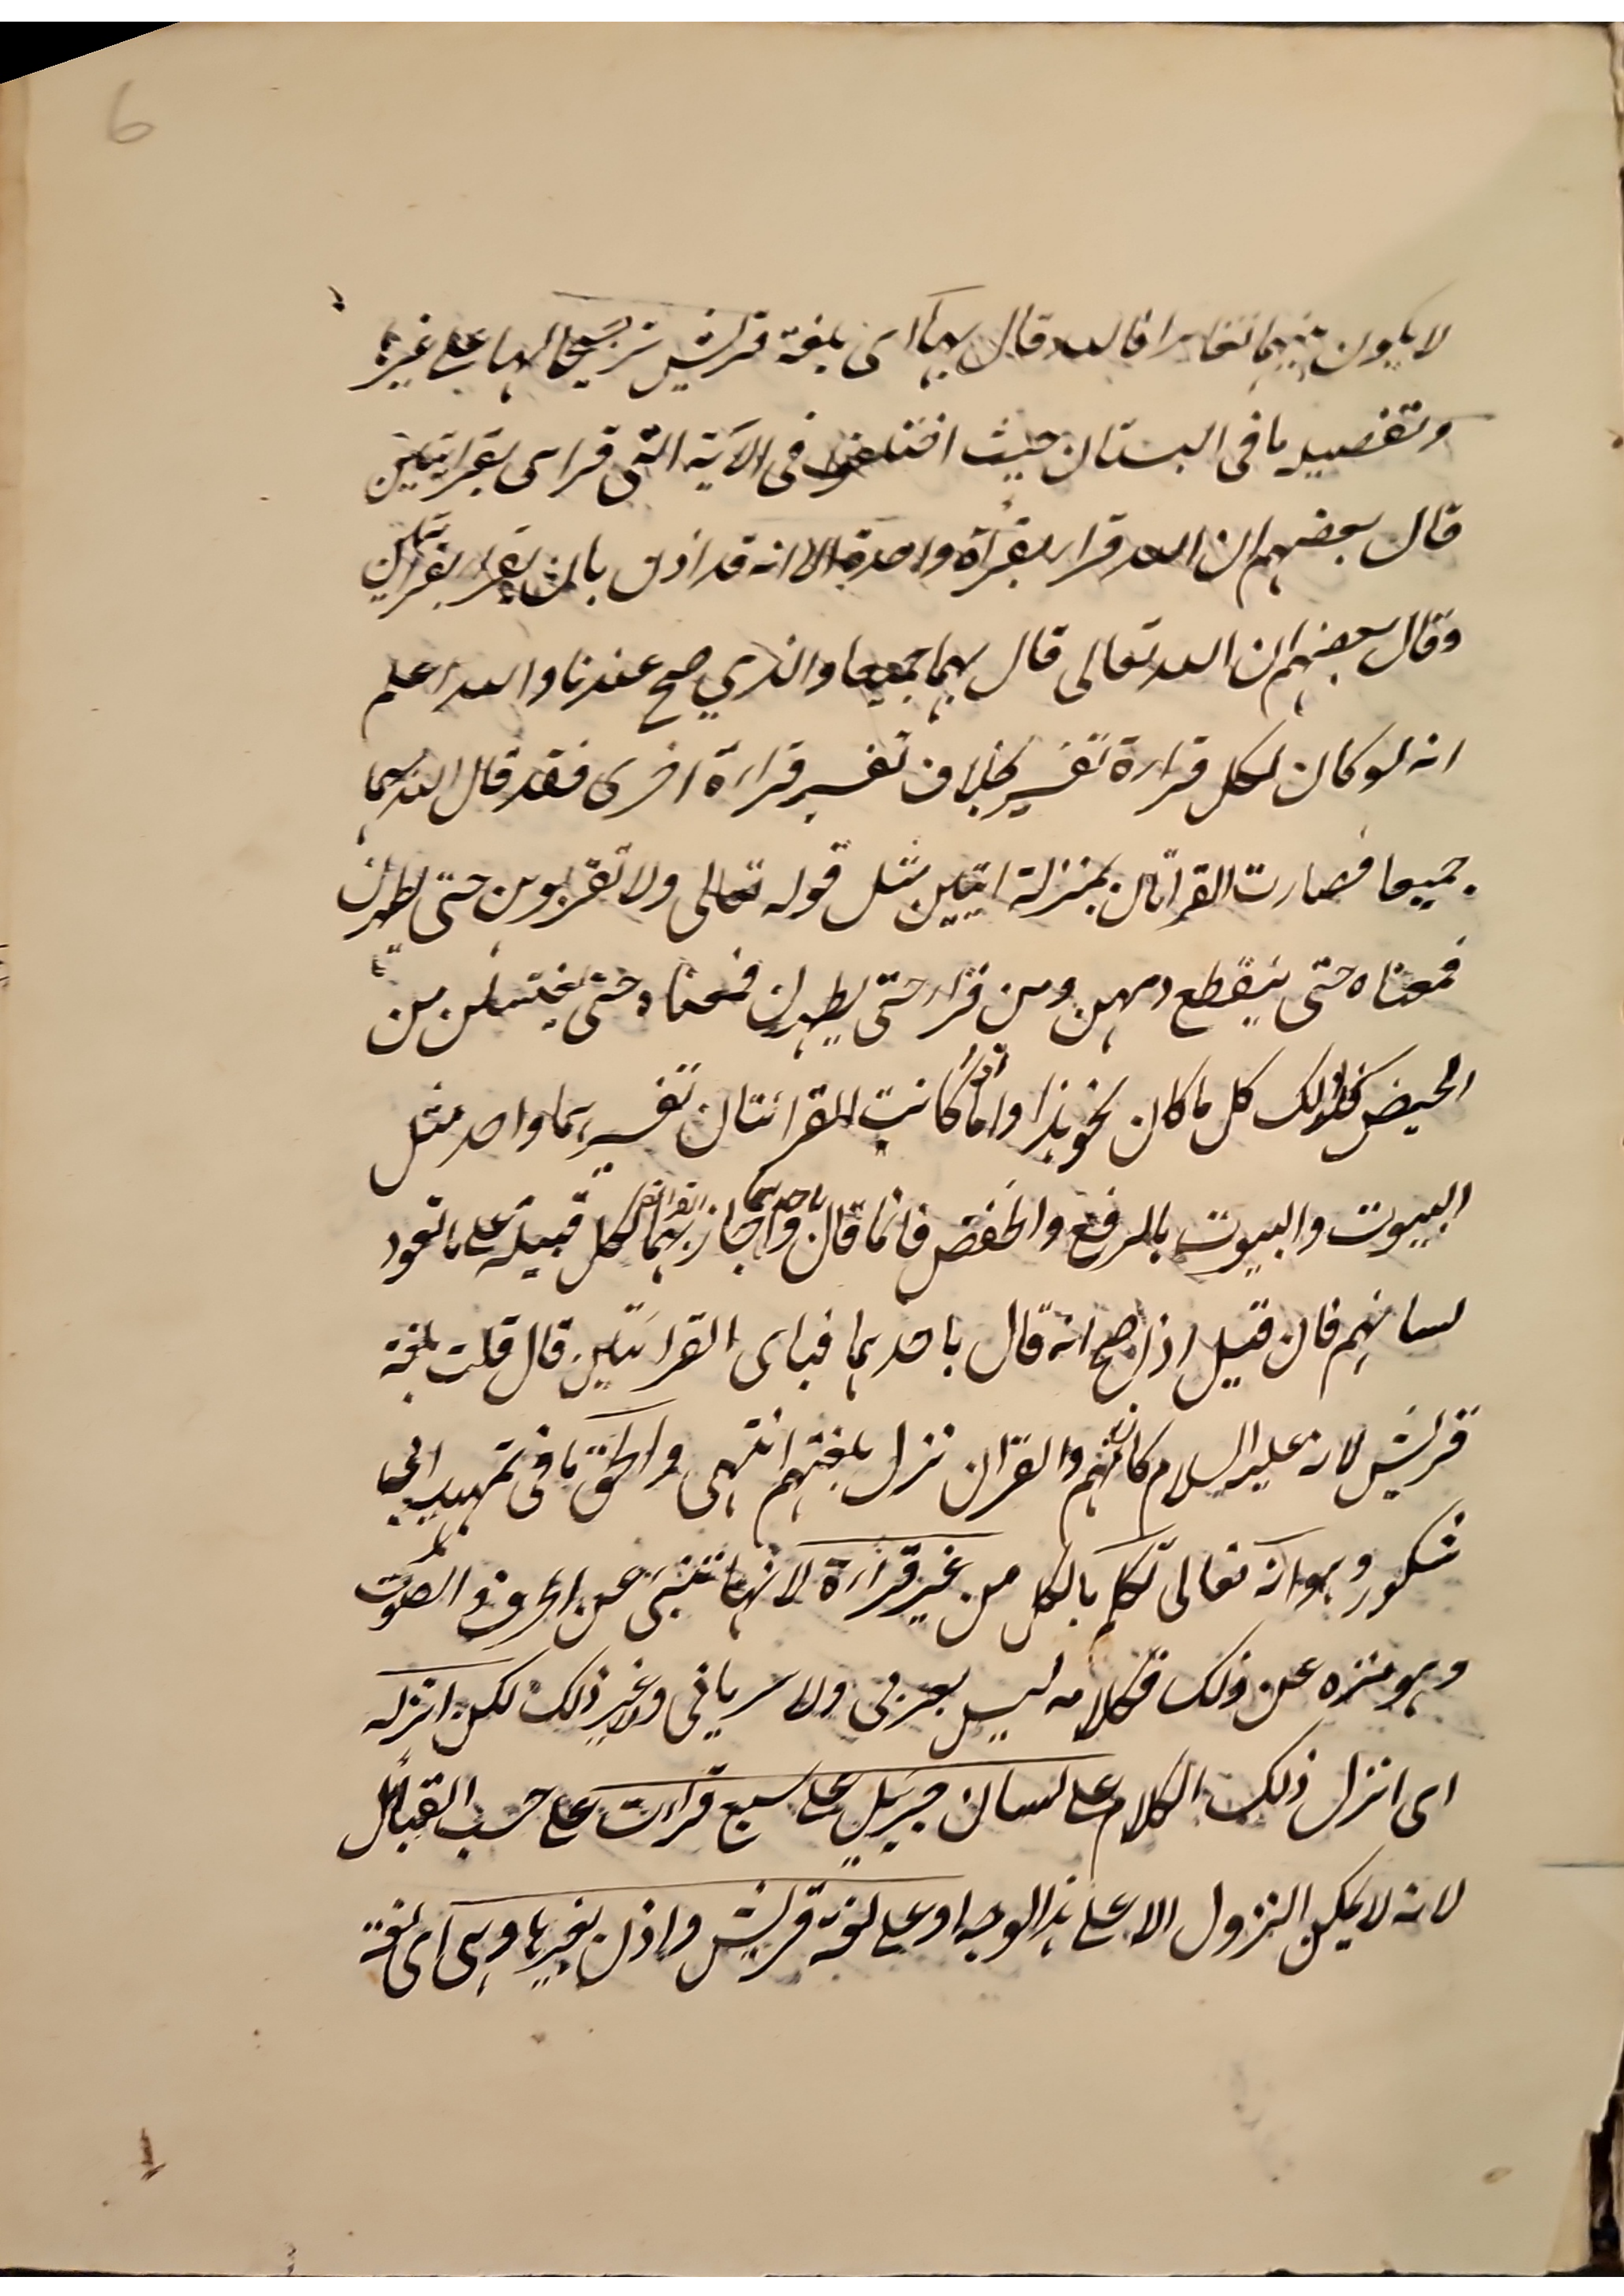 6
لا يكون بينهما تغايرا فالله قال بها اى بلغة قريش ترجيحا لها على غيرها
وتفصيله ما فى البستان حيث اختلفوا فى الآية التى قراى بقرائتين
قال بعضهم ان الله قرا بقرآة واحدة الا انه قد اذن بان يقرا بقرائتين
وقال بعضهم ان الله تعالى قال بهما جميعا والذي صح عندنا والله اعلم
انه لو كان لكل قراءة تفسير بخلاف تفسير قراءة اخرى فقد قال الله بهما
جميعا فصارت القراتان بمنزلة ايتين مثل قوله تعالى ولا تقربوهن حتى يطهرن
فمعناه حتى ينقطع دمهن ومن قرا حتى يطهرن فمعناه حتى يغتسلن من
الحيض فكذلك كل ما كان نحو هذا واما اذا كانت القرائتان تفسيرهما واحد مثل
البيوت والبيوت بالرفع والخفض فانما قال باحدهما واجاز القراة بهما لكل قبيلة على ما تعود
لسانهم فان قيل اذا صح انه قال باحدهما فباى القرائتين قال قلت بلغة
قريش لانه عليه السلام كان منهم والقرآن نزل بلغتهم انتهى والحق ما فى تمهيد ابى
شكور وهو انه تعالى تكلم بالكل من غير قراءة لانها تنبئ عن الحروف والصوت
وهو منزه عن ذلك فكلامه ليس بعربى ولا سريانى ولا غير ذلك لكن انزله
اى انزل ذلك الكلام على لسان جبريل على سبع قراءت على حسب القبائل
لانه لا يمكن النزول الا على هذا الوجه او على لغة قريش واذن بغيرها وهى اى لغة